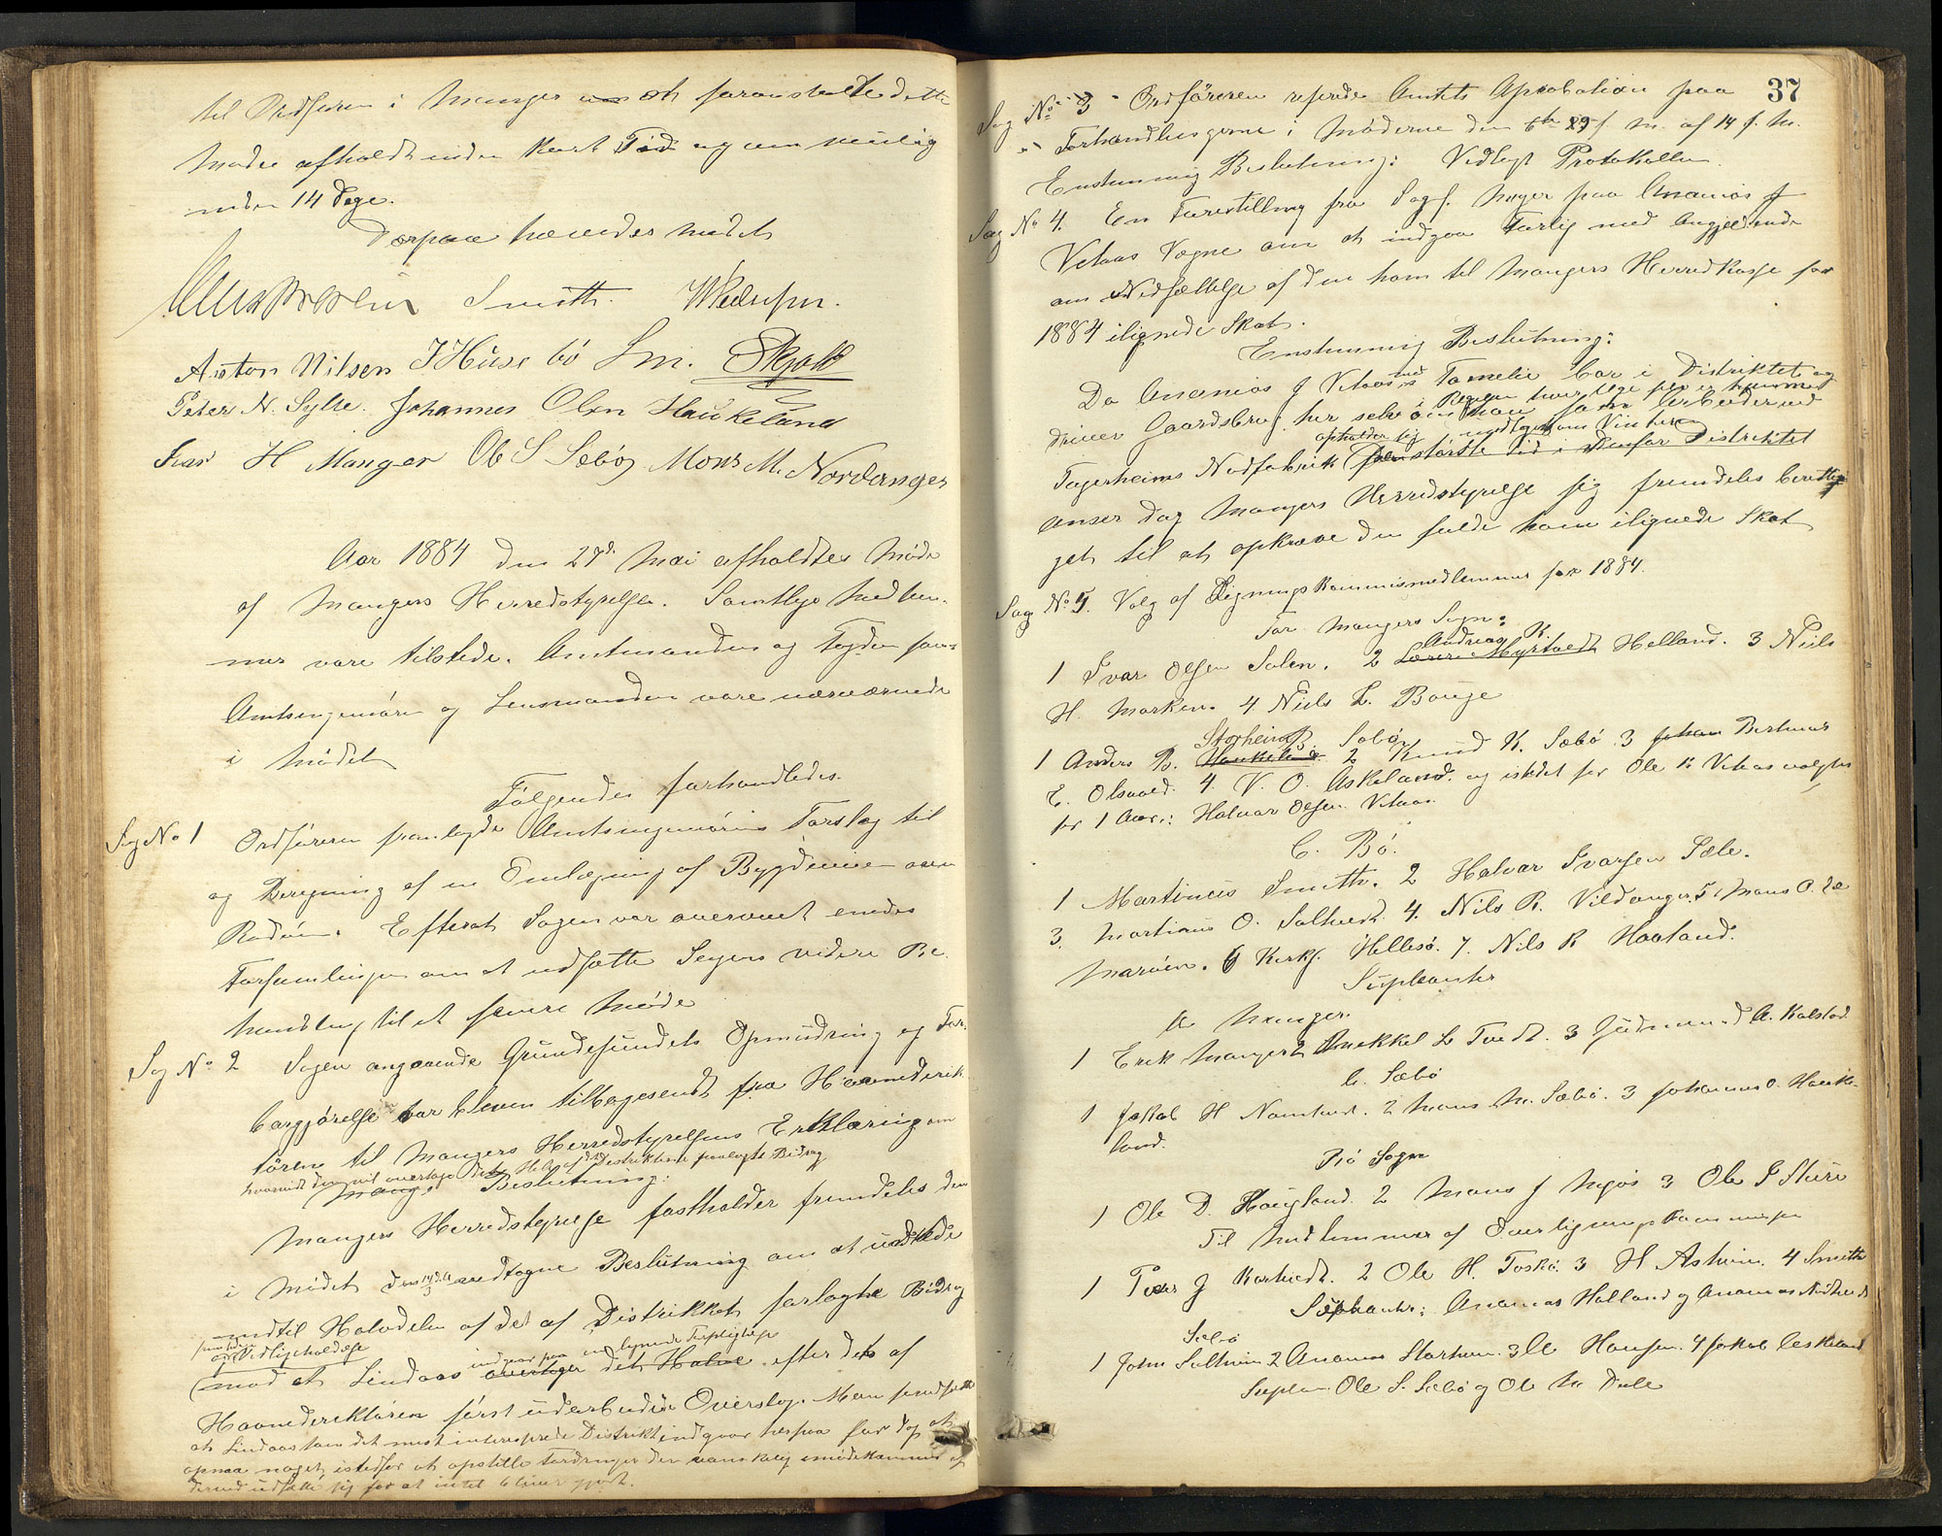 til Ordføreren i Manger om at foranstalte dette
Møde afholdt inden kort Tid og om mulig
inden 14 Dage.
Derpaa hævedes mødet
Smith.
Anton Nilsen J Husebö Sm. Skjold
Peter N. Sylte. Johannes Olsen Haukeland
Ivar H Manger Ole S Sæbø Mons M. Nordanger
Aar 1884 den 27d. Mai afholdtes Møde
af Mangers Herredstyrelse. Samtlige Medlem-
mer vare tilstede. Amtmanden og Fogden samt
Amtsingeniøren og Lensmanden vare nærværende
i Mødet
Følgende forhandledes.
Sag No 1 Ordføreren fremlagde Amtsingeniørens Forslag til
og Beregning af en Omlægning af Bygdeveien over
Radøen. Efterat Sagen var overveiet enedes
Forsamlingen om at udsætte Sagens videre Be-
handling til et senere Møde
Sag No 2 Sagen angaaende Grundesundets Opmudring og Far-
bargjørelse var bleven tilbagesendt fra Havnedirek-
tøren til Mangers Herredstyrelses Erklæring om
hvorvidt den vil overtage det Halve af det Distrikterne paalagte Bidrag
Mange Beslutning:
Mangers Herredstyrelse fastholder fremdeles den
i Mødet den vedtagne Beslutning om at udrede
indtil Halvdelen af det af Distriktet forlangte Bidrag
og Vedligeholdelse indgaar paa en lignende Forpligtelse
mod at Lindaas overtager det Halve efter det af
Havnedirektøren først udarbeidede Overslag. Man
at Lindaas som det mest interesserede Distrikt indgaar herpaa for dog at
opnaa noget istedfor at opstille Fordringer der vanskelig imødekommes og
derved udsætte sig for at intet bliver gjort.
37
Sag No 3 Ordføreren referede Amtets Aprobation paa
Forhandlingerne i Møderne den 6te 29 f. M. af 14 f. M.
Enstemmig Beslutning: Vedlagt Protokollen.
Sag No 4. En Forestilling fra Sagf. Meyer paa Ananias J
Vetaas Vegne om at indgaa Forlig med Angjeldende
om Nedsættelse af den ham til Mangers Herredkasse for
1884 ilignede Skat.
Enstemmig Beslutning:
Da Ananias J Vetaas med Familie bor i Distriktet og
driver Gaardsbrug her selv om han som Arbeider ved
i Regelen hver Uge er hjemme
Fagerheims Nodfabrik opholder sig største Tid i udenfor Distriktet
anser dog Mangers Herredstyrelse sig fremdeles beretti-
get til at opkræve den fulde ham ilignede Skat
Sag No 5. Valg af Ligningskommismedlemmer for 1884.
For Mangers Sogn:
1 Ivar Olsen Solen. 2 Lærer Myrtvedt Andreas K. Helland. 3 Niels
H. Marken. 4 Niels L. Bouge
Sæbø
1 Anders B. Haukeland Storheim 2 Knud K. Sæbö 3 Johan Bertinus
E. Olsvold. 4. V. O. Askeland. og istedet for Ole K Vetaas valgtes
for 1 Aar: Halvor Olsen Vetaas.
C. Bö.
1 Martinus Smith. 2 Halvor Ivarsen Sæle.
3. Martinus O. Soltvedt 4. Nils R. Vildanger 5. Mons O.
Marøen. 6 Kirks. Hellesö. 7. Nils R Haaland.
Supleanter
A Manger.
1 Erik Manger 2 Mikkel L Tvedt. 3 Gudmund A. Kolstad
b. Sæbö
1 Jakob H Namtvedt. 2 Mons M. Sæbö. 3 Johannes O. Hauke-
land.
Bö Sogn
1 Ole D. Haugland. 2 Mons J Mjøs 3 Ole J Sture
Til Medlemmer af Overligningskommissen
1 Peder J Kartvedt. 2 Ole H. Toskö. 3 H Askeim. 4 Smith
Supleanter: Ananias Holland og Ananias
Sæbø
1 John Soltveim 2 Ananias Storheim 3 Hansen. 4 Jakob Askeland
Suplean. Ole S. Sæbö og Ole M Dale